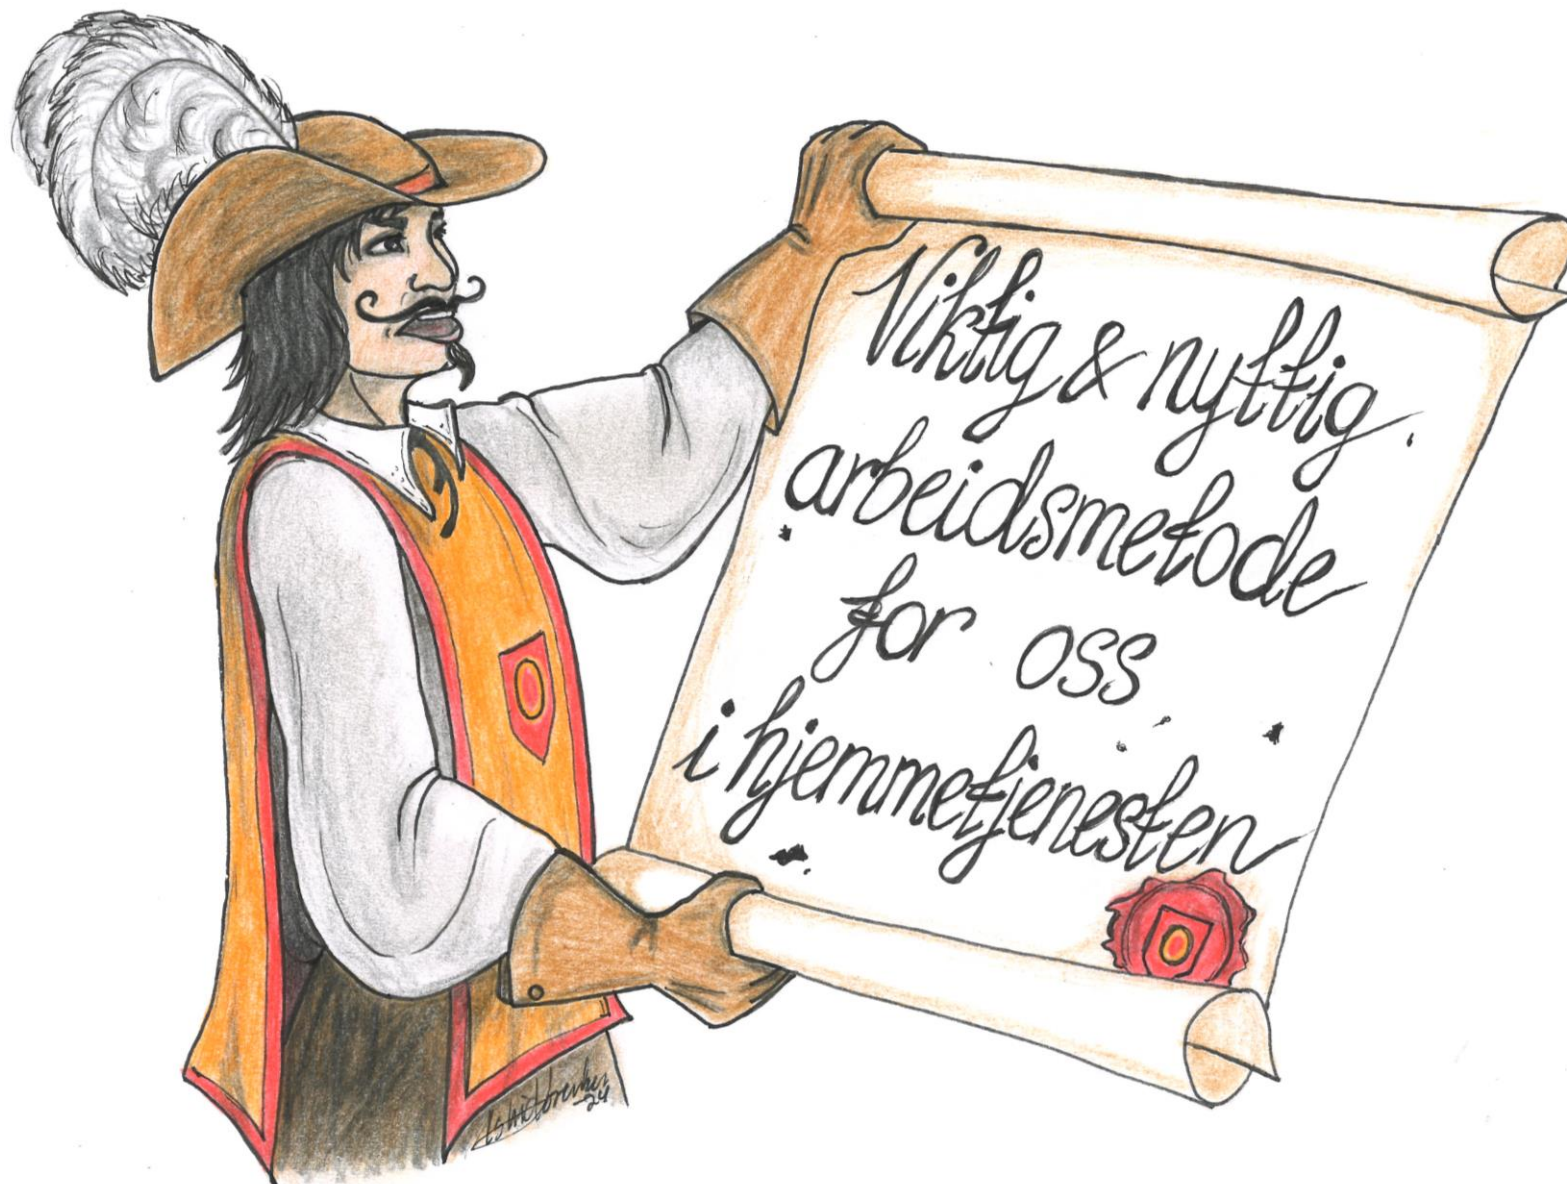 Viktig & nyttig
arbeidsmetode
for oss
i hjemmetjenesten
-24